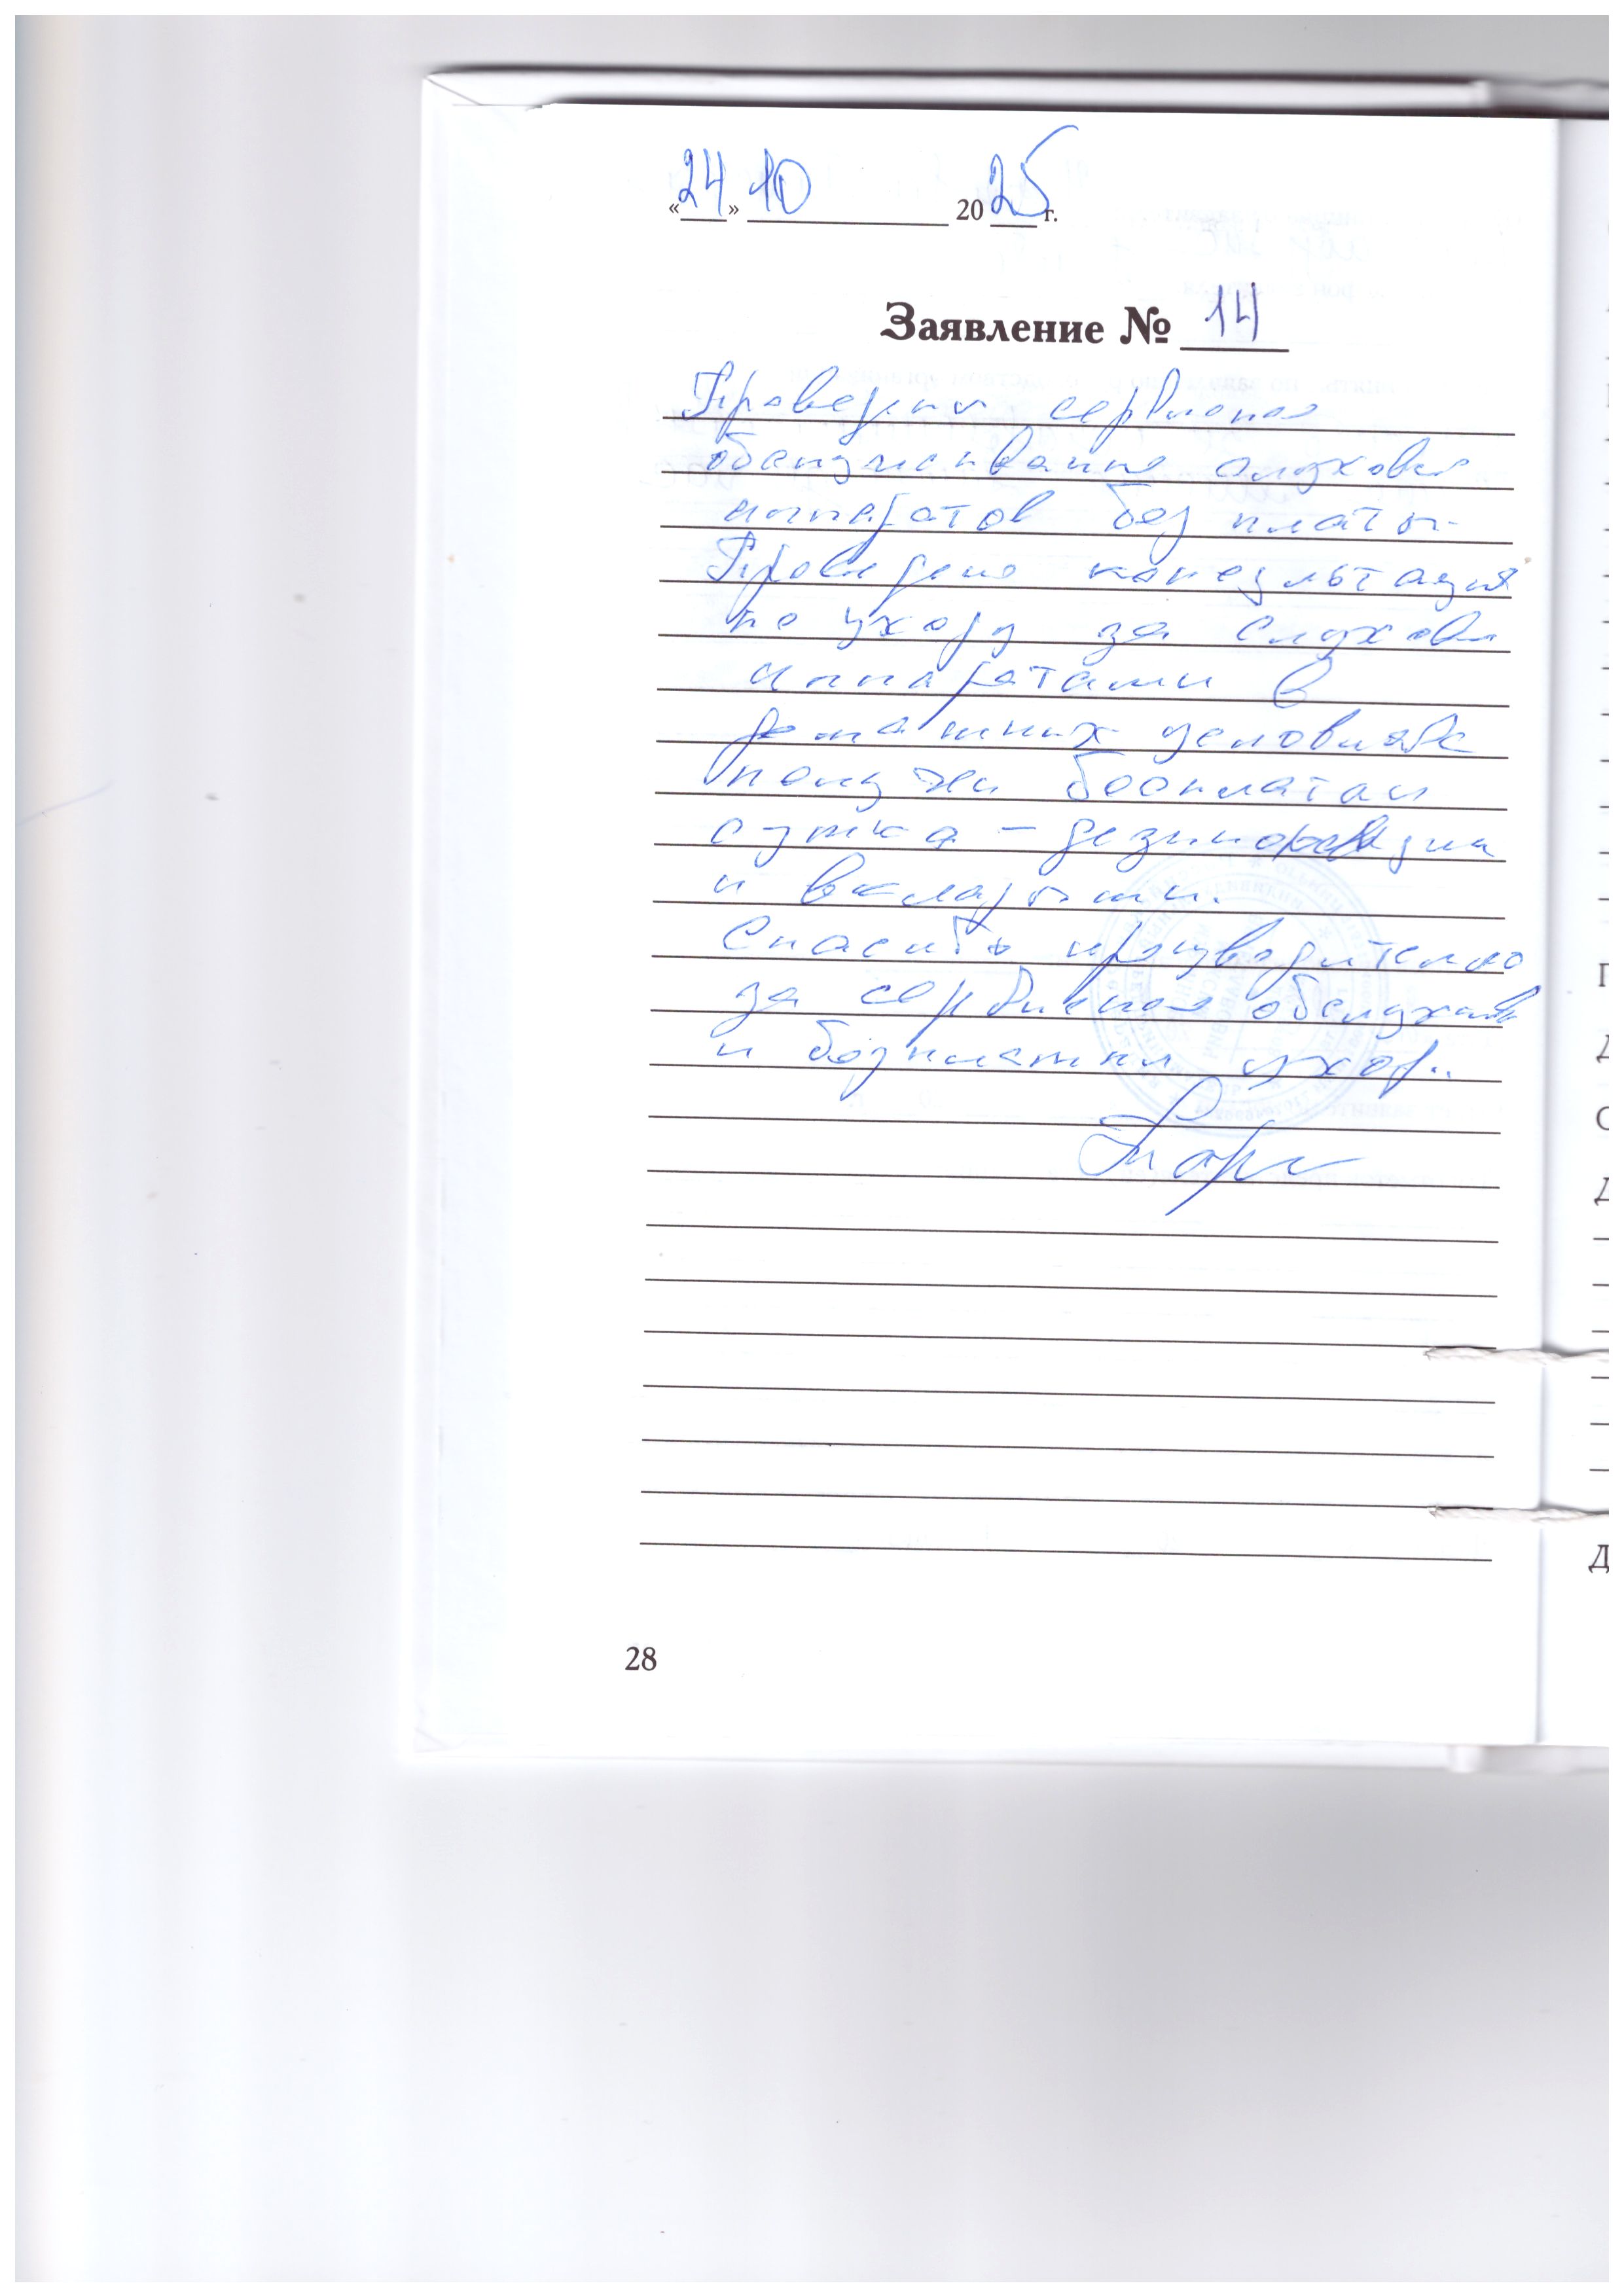 «24» 10 2025 г.
Заявление № 14
Проведен сервисное
обслуживание слухових
аппаратов без платы
Проведено консультация
по уходу за слухов
аппаратами в
домашних условиях
получен бесплатан
сушка – дезинфекция
и вкладыши.
Спасибо производителю
за сервисное обслужив
и бесплатни уход..
28